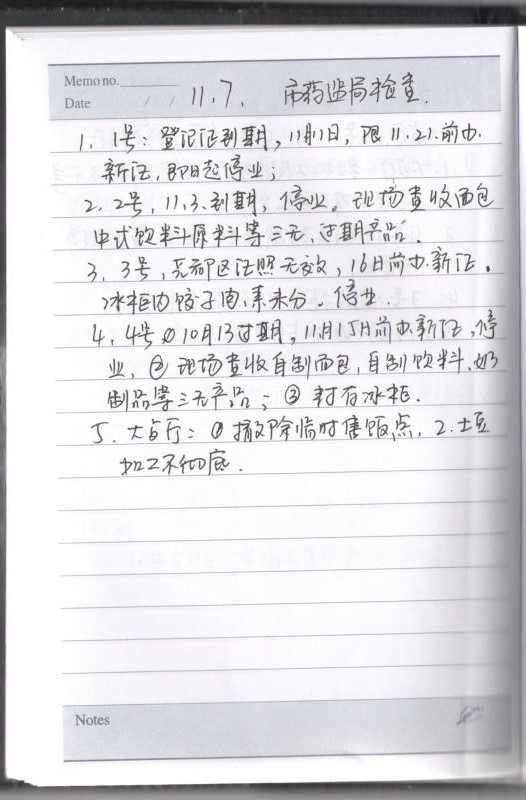 Memo no.
Date / / 11.7. 市药监局检查.
1. 1号：登记证到期，11月1日，限11.21.前办
新证，即日起停业；
2. 2号，11.3.到期，停业。现场责收面包
中式饮料原料等三无、过期产品.
3. 3号，区证照无效，16日前办新证。
冰柜内饺子肉、素未分. 停业.
4. 4号①10月13过期，11月15日前办新证，停
业，② 现场责收自制面包，自制饮料、奶
制品等三无产品；③ 封存冰柜.
5. 大餐厅：① 撤除临时售饭点，2.土豆
加工不彻底.
Notes